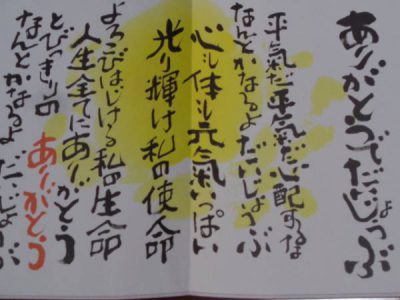 ありがとうでだいじょっぶ
平気だ平気だ心配するな
なんとかなるよだいじょうぶ
心も体も元氣いっぱい
光り輝け私の使命
よろこびはじける私の生命
人生全てにありがとう
とびっきりのありがとう
なんとかなるよだいじょうぶ